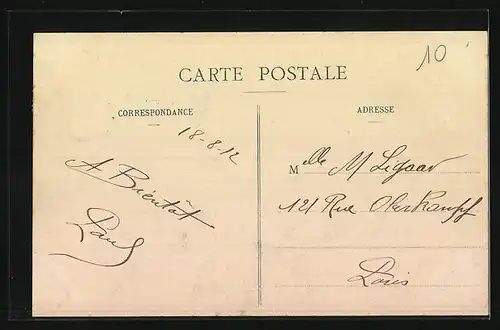 10
CARTE POSTALE
CORRESPONDANCE
ADRESSE
18-8-12
A Bientôt
Paul
Melle M Ligaar
121 Rue Oberkampf
Paris